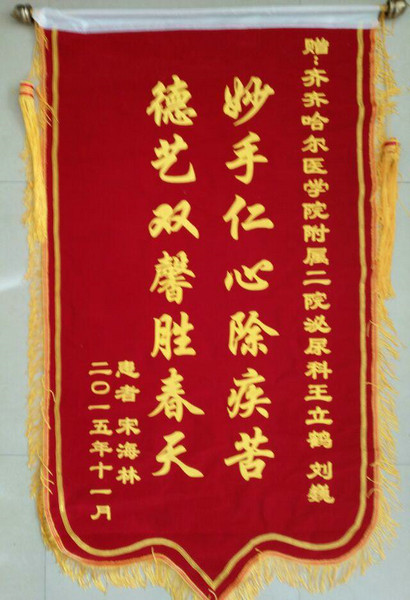 赠:齐齐哈尔医学院附属二院泌尿科王立鹤 刘巍
妙手仁心除疾苦
德艺双馨胜春天
患者 宋海林
二〇一五年十一月